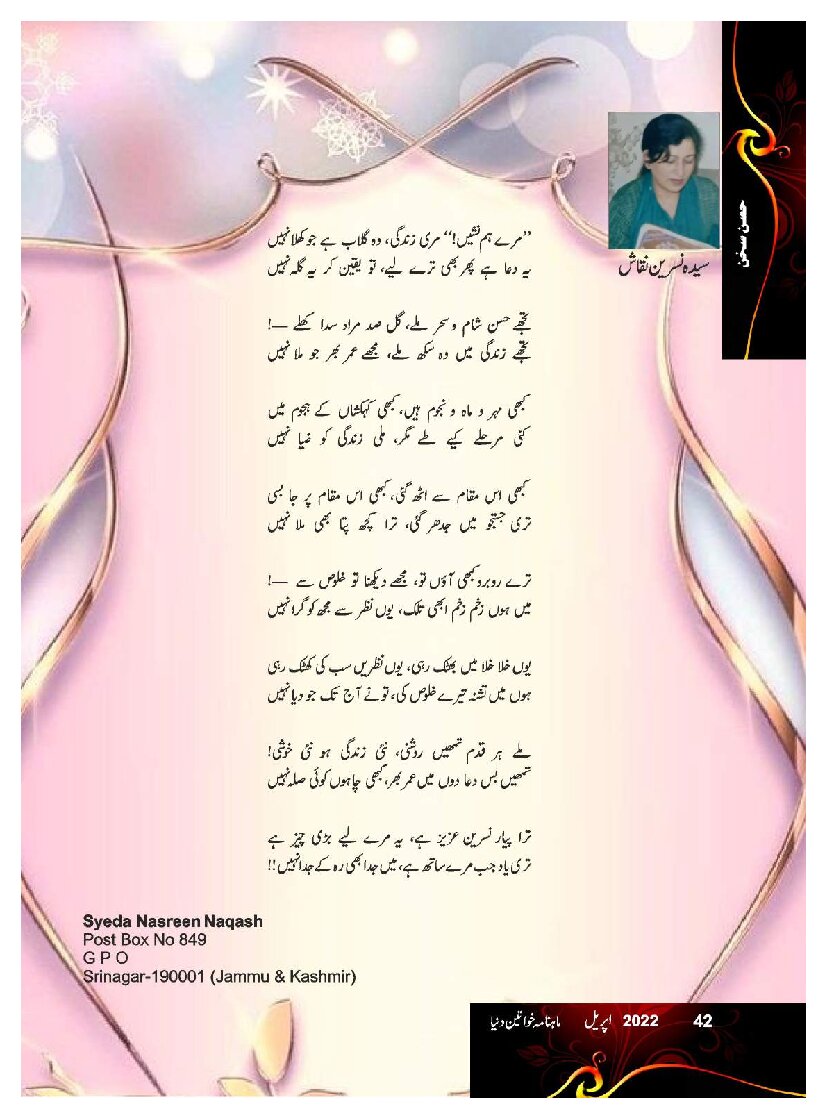 حسن سخن
سیدہ نسرین نقاش
’’مرے ہم نشیں!‘‘ مری زندگی، وہ گلاب ہے جو کھلا نہیں
یہ دعا ہے پھر بھی ترے لیے، تو یقین کر یہ گلہ نہیں
تجھے حسن شام و سحر ملے، گل صد مراد سدا کھلے —!
تجھے زندگی میں وہ سکھ ملے، مجھے عمر بھر جو ملا نہیں
کبھی مہر و ماہ و نجوم ہیں، کبھی کہکشاں کے ہجوم میں
کئی مرحلے کیے طے مگر، ملی زندگی کو ضیا نہیں
کبھی اس مقام سے اٹھ گئی، کبھی اس مقام پر جا بسی
تری جستجو میں جدھر گئی، ترا کچھ پتا بھی ملا نہیں
ترے روبرو کبھی آؤں تو، مجھے دیکھنا تو خلوص سے —!
میں ہوں زخم زخم ابھی تلک، یوں نظر سے مجھ کو گرا نہیں
یوں خلا خلا میں بھٹک رہی، یوں نظریں سب کی کھٹک رہی
ہوں میں تشنہ تیرے خلوص کی، تو نے آج تک جو دیا نہیں
ملے ہر قدم تمھیں روشنی، نئی زندگی ہو نئی خوشی!
تمھیں بس دعا دوں میں عمر بھر، کبھی چاہوں کوئی صلہ نہیں
ترا پیار نسرین عزیز ہے، یہ مرے لیے بڑی چیز ہے
تری یاد جب مرے ساتھ ہے، میں جدا بھی رہ کے جدا نہیں!!
Syeda Nasreen Naqash
Post Box No 849
G P O
Srinagar-190001 (Jammu & Kashmir)
ماہنامہ خواتین دنیا اپریل 2022 42